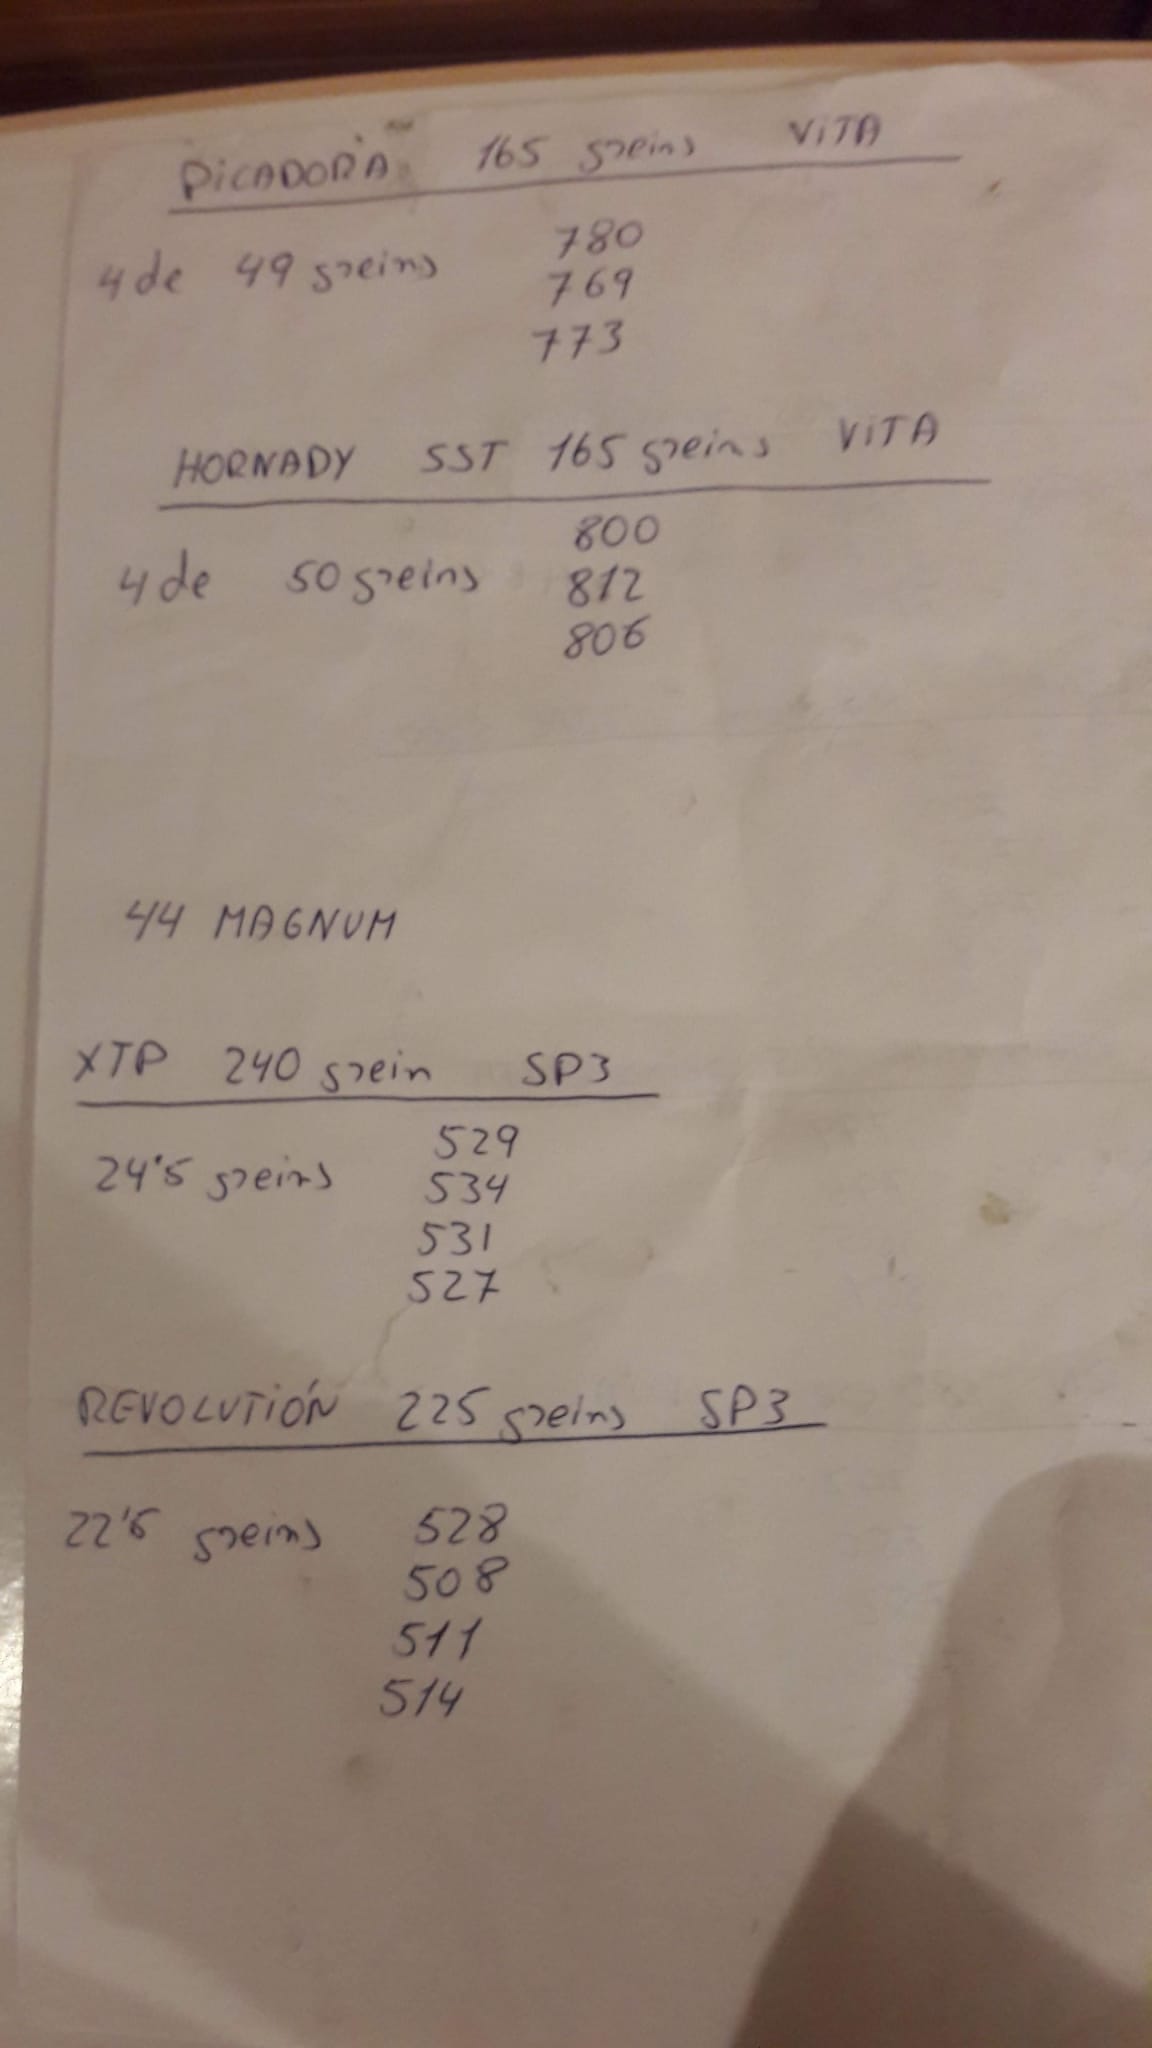 PICADORA 165 greins VITA
4 de 49 greins 780
769
773
HORNADY SST 165 greins VITA
800
4 de 50 greins 812
806
44 MAGNUM
XTP 240 grein SP3
529
24'5 greins 534
531
527
REVOLUTIÓN 225 greins SP3
22'5 greins 528
508
511
514